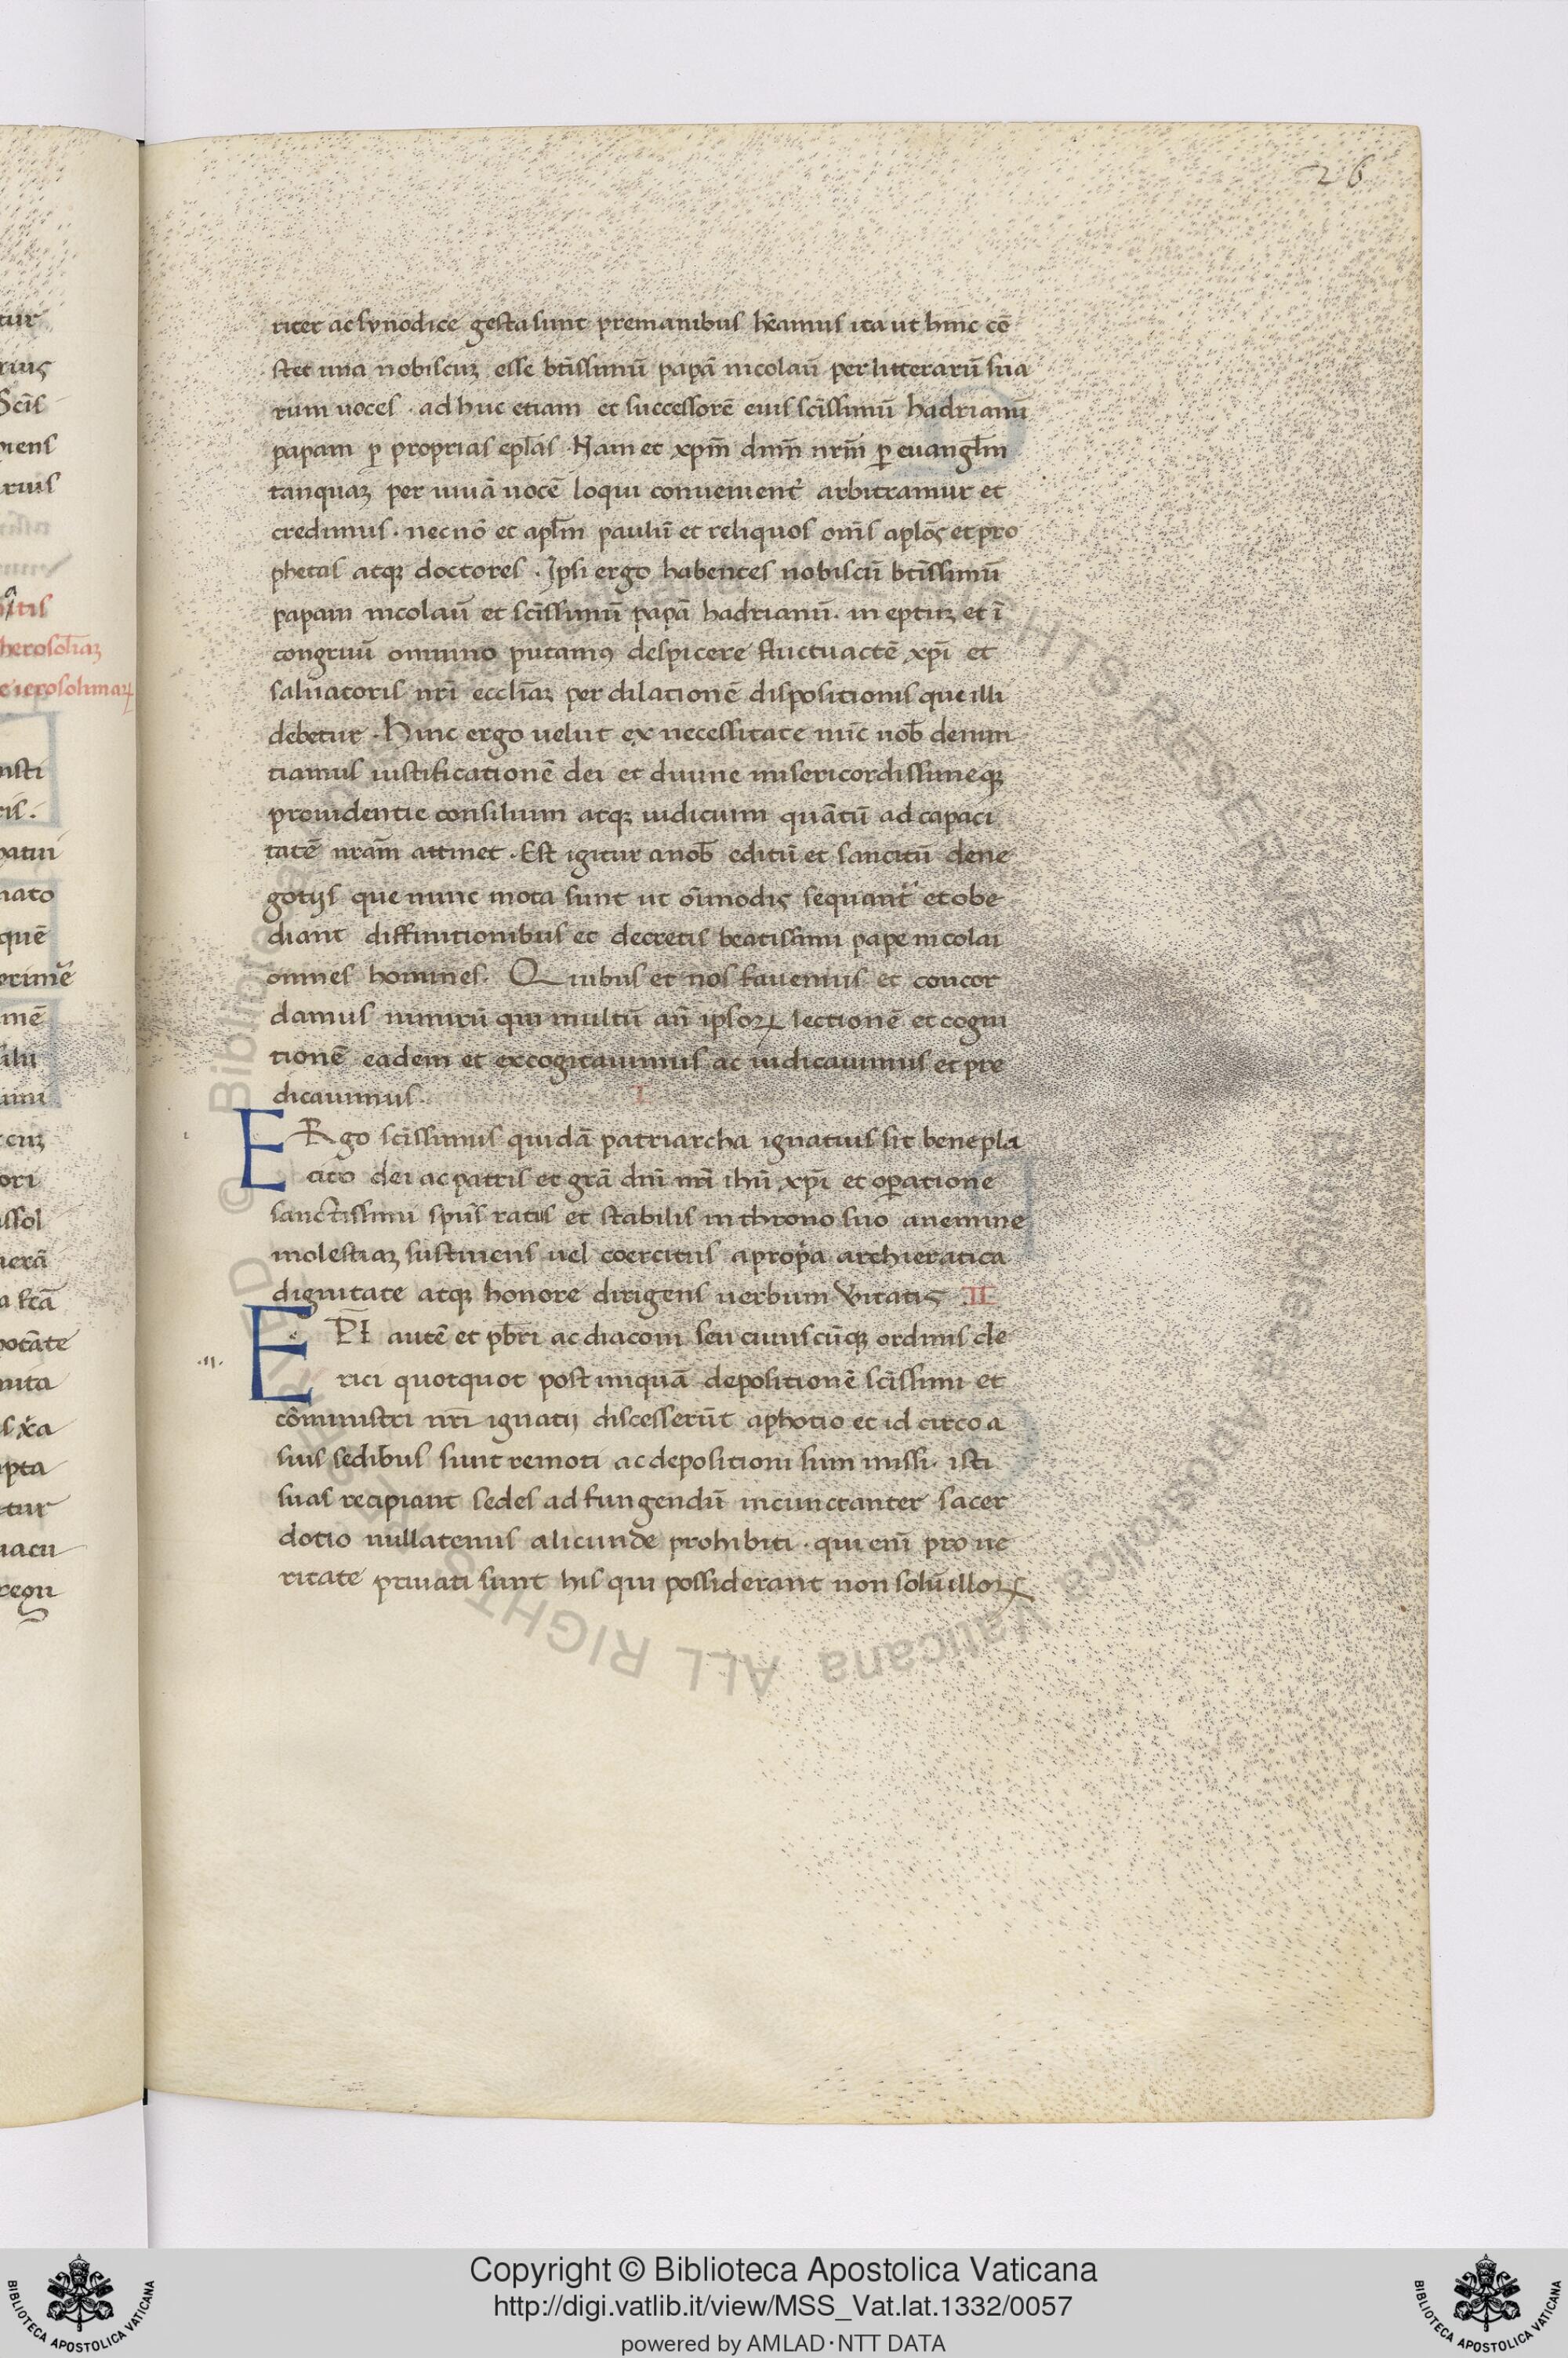 26
riter ac synodice gesta sunt premanibus hēamus ita ut hinc cō
stet una nobiscuꝫ esse btīssimū papā nicolaū per litterarū sua
rum uoces · ad huc etiam et successorē eius scīssimū hadrianū
papam ꝑ proprias eplās · Nam et xpm̄ dnm̄ nrm̄ ꝑ euanglm̄
tanquaꝫ per uiuā uocē loqui conuenient̄ arbitramur et
credimus · necnō et aplm̄ paulū et reliquos om̄s aplōs et pro
phetas atqꝫ doctores · Ipsi ergo habentes nobiscū btīssimū
papam nicolaū et scīssimū papā hadrianū · in eptuꝫ et ī
congruū omnino putamꝰ despicere fluctuactē xpī et
saluatoris nrī eccliaꝫ per dilationē dispositionis que illi
debetur · Hinc ergo uelut ex necessitate nūc uob̄ denun
tiamus iustificationē dei et diuine misericordissimeqꝫ
prouidentie consilium atqꝫ iudicium quātū ad capaci
tatē nrām attinet · Est igitur a nob̄ editū et sancitū dene
gotijs que nunc mota sunt ut oīmodis sequant̄ et obe
diant diffinitionibus et decretis beatissimi pape nicolai
omnes homines · Quibus et nos fauemus et concor
damus nimirū qui multū an̄ ipsoꝝ lectionē et cogni
tionē eadem et excogitauimus ac iudicauimus et pre
dicauimus · I
ERgo scīssimus quidā patriarcha ignatius sit benepla
cito dei ac patris et grā dnī nrī ihū xpī et oꝑatione
sanctissimi spūs ratus et stabilis in throno suo anemine
molestiaꝫ sustinens uel coercitus a propa archieratica
dignitate atqꝫ honore dirigens uerbum ūitatis II
·II·
EPI autē et pbrī ac diaconi seu cuiuscūqꝫ ordinis cle
rici quotquot post iniquā depositionē scīssimi et
cōministri nrī ignatij discesserūt aphotio et id circo a
suis sedibus sunt remoti ac depositioni sum missi · isti
suas recipiant sedes ad fungendū incunctanter sacer
dotio nullatenus alicunde prohibiti · qui enī pro ue
ritate priuati sunt his qui possiderant non solū illoꝝ
Copyright © Biblioteca Apostolica Vaticana
http://digi.vatlib.it/view/MSS_Vat.lat.1332/0057
powered by AMLAD·NTT DATA
BIBLIOTECA APOSTOLICA VATICANA
BIBLIOTECA APOSTOLICA VATICANA